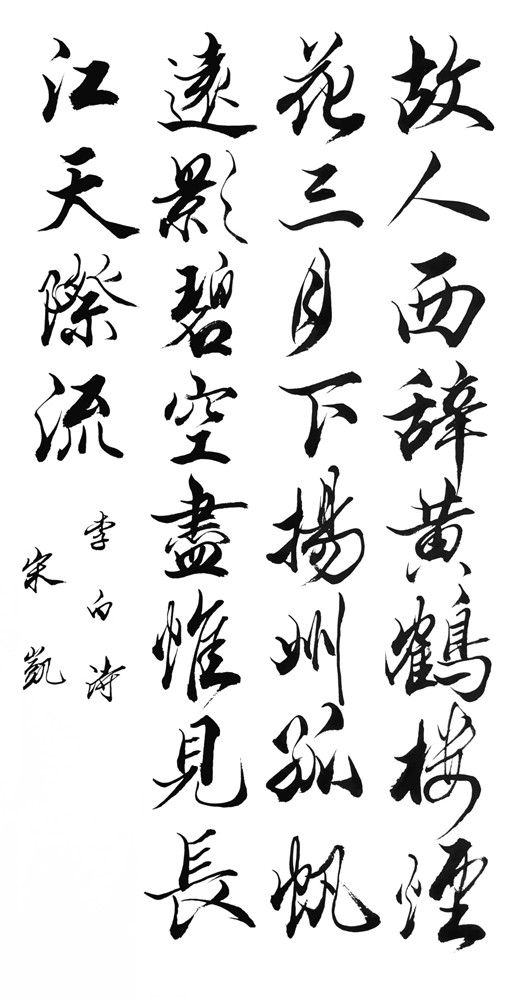 故人西辞黄鹤楼煙
花三月下揚州孤帆
遠影碧空盡惟見長
江天際流
李白诗
宋凯